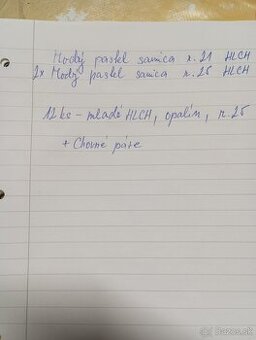 Modrý pastel samica r. 21 HLCH
2x Modrý pastel samica r. 25 HLCH
12 ks - mladé HLCH, opalín, r. 25
+ Chovné páre
bazos.sk